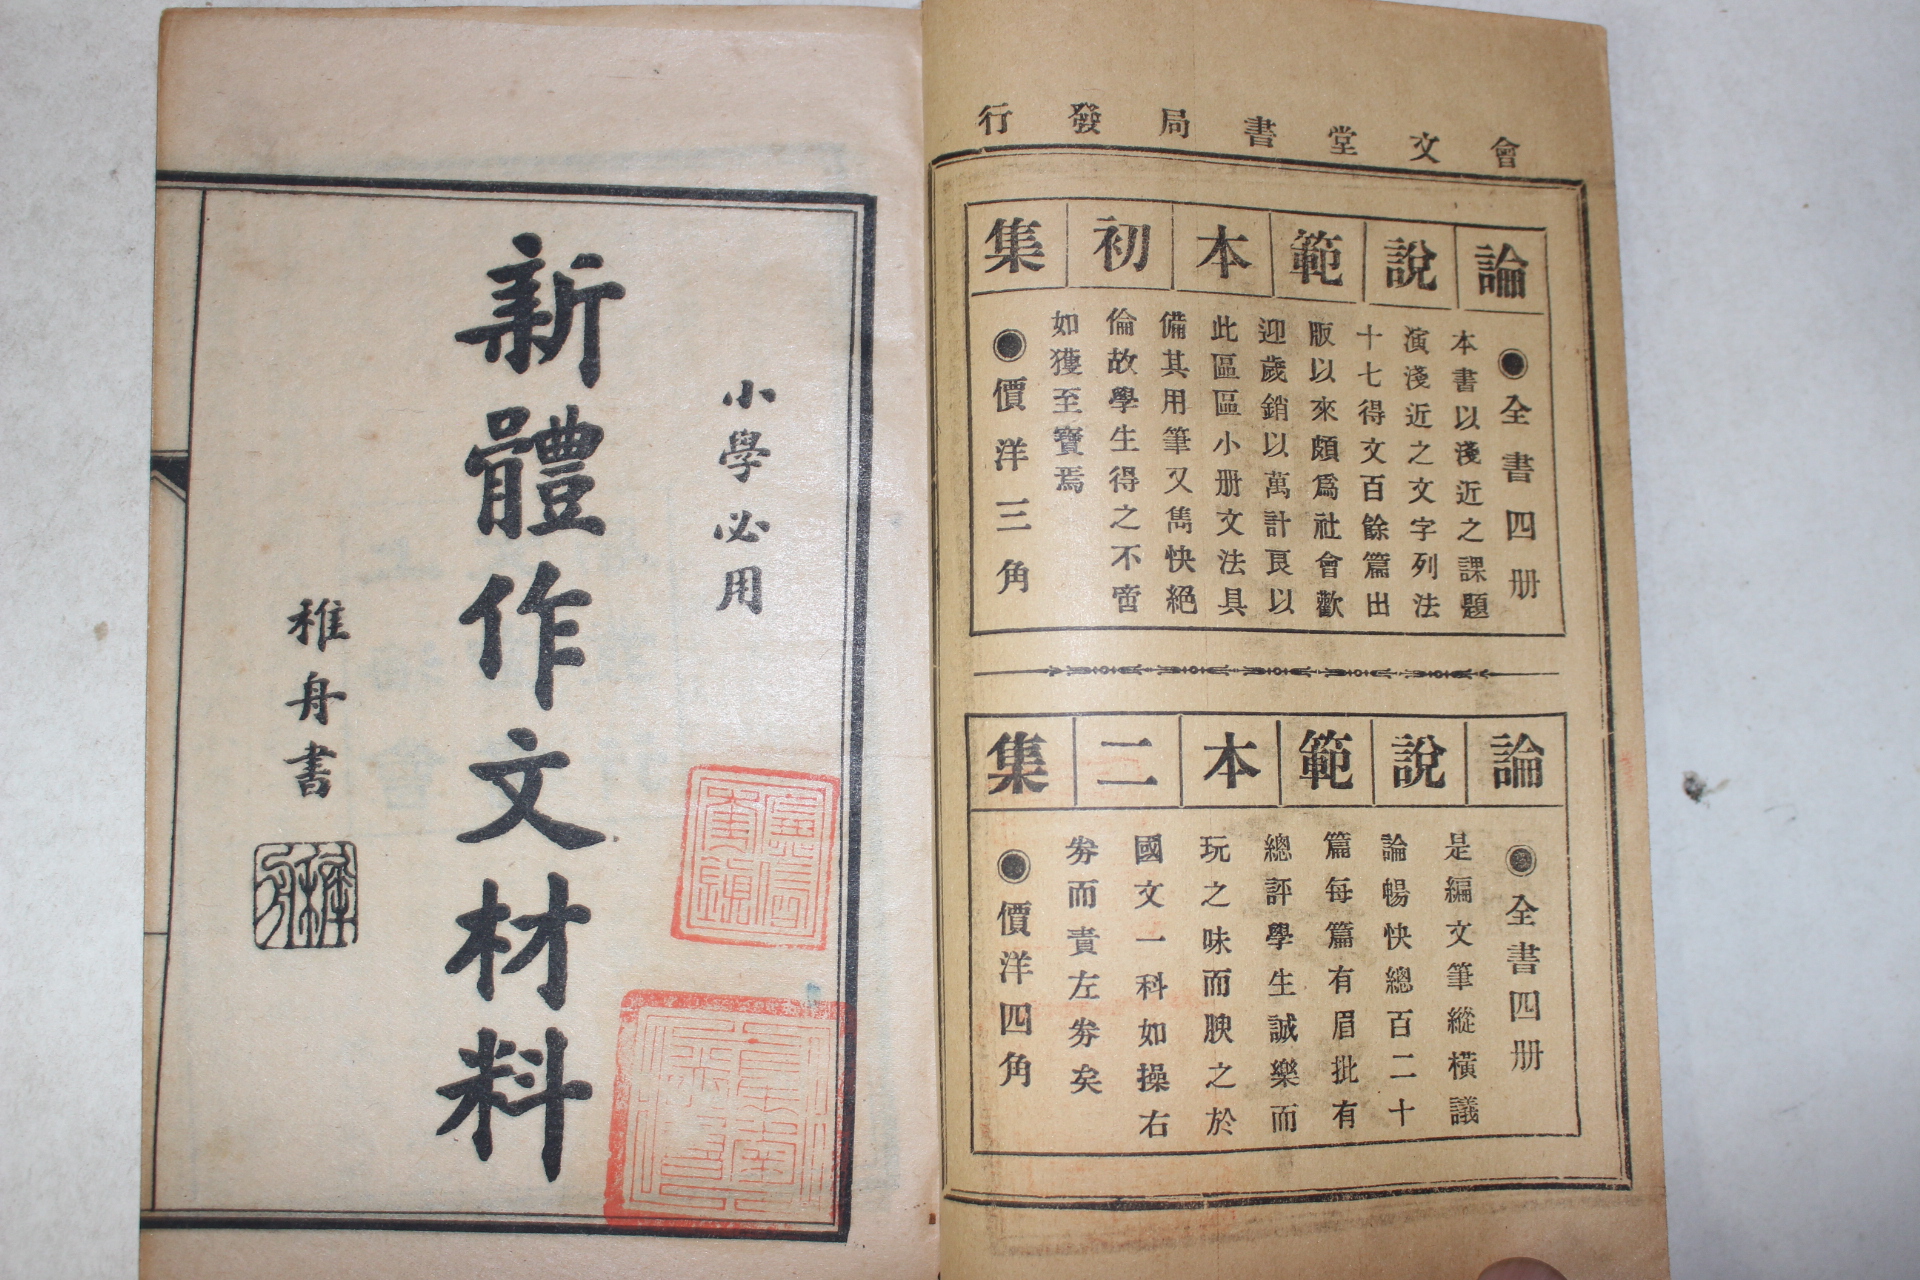 會文堂書局發行
論說範本初集
●全書四册
本書以淺近之課題
演淺近之文字列法
十七得文百餘篇出
版以來頗爲社會歡
迎歲銷以萬計良以
此區區小册文法具
備其用筆又雋快絕
倫故學生得之不啻
如獲至寶焉
●價洋三角
論說範本二集
●全書四册
是編文筆縱橫議
論暢快總百二十
篇每篇有眉批有
總評學生誠樂而
玩之味而腴之於
國文一科如操右
劵而責左劵矣
●價洋四角
小學必用
新體作文材料
稚舟書